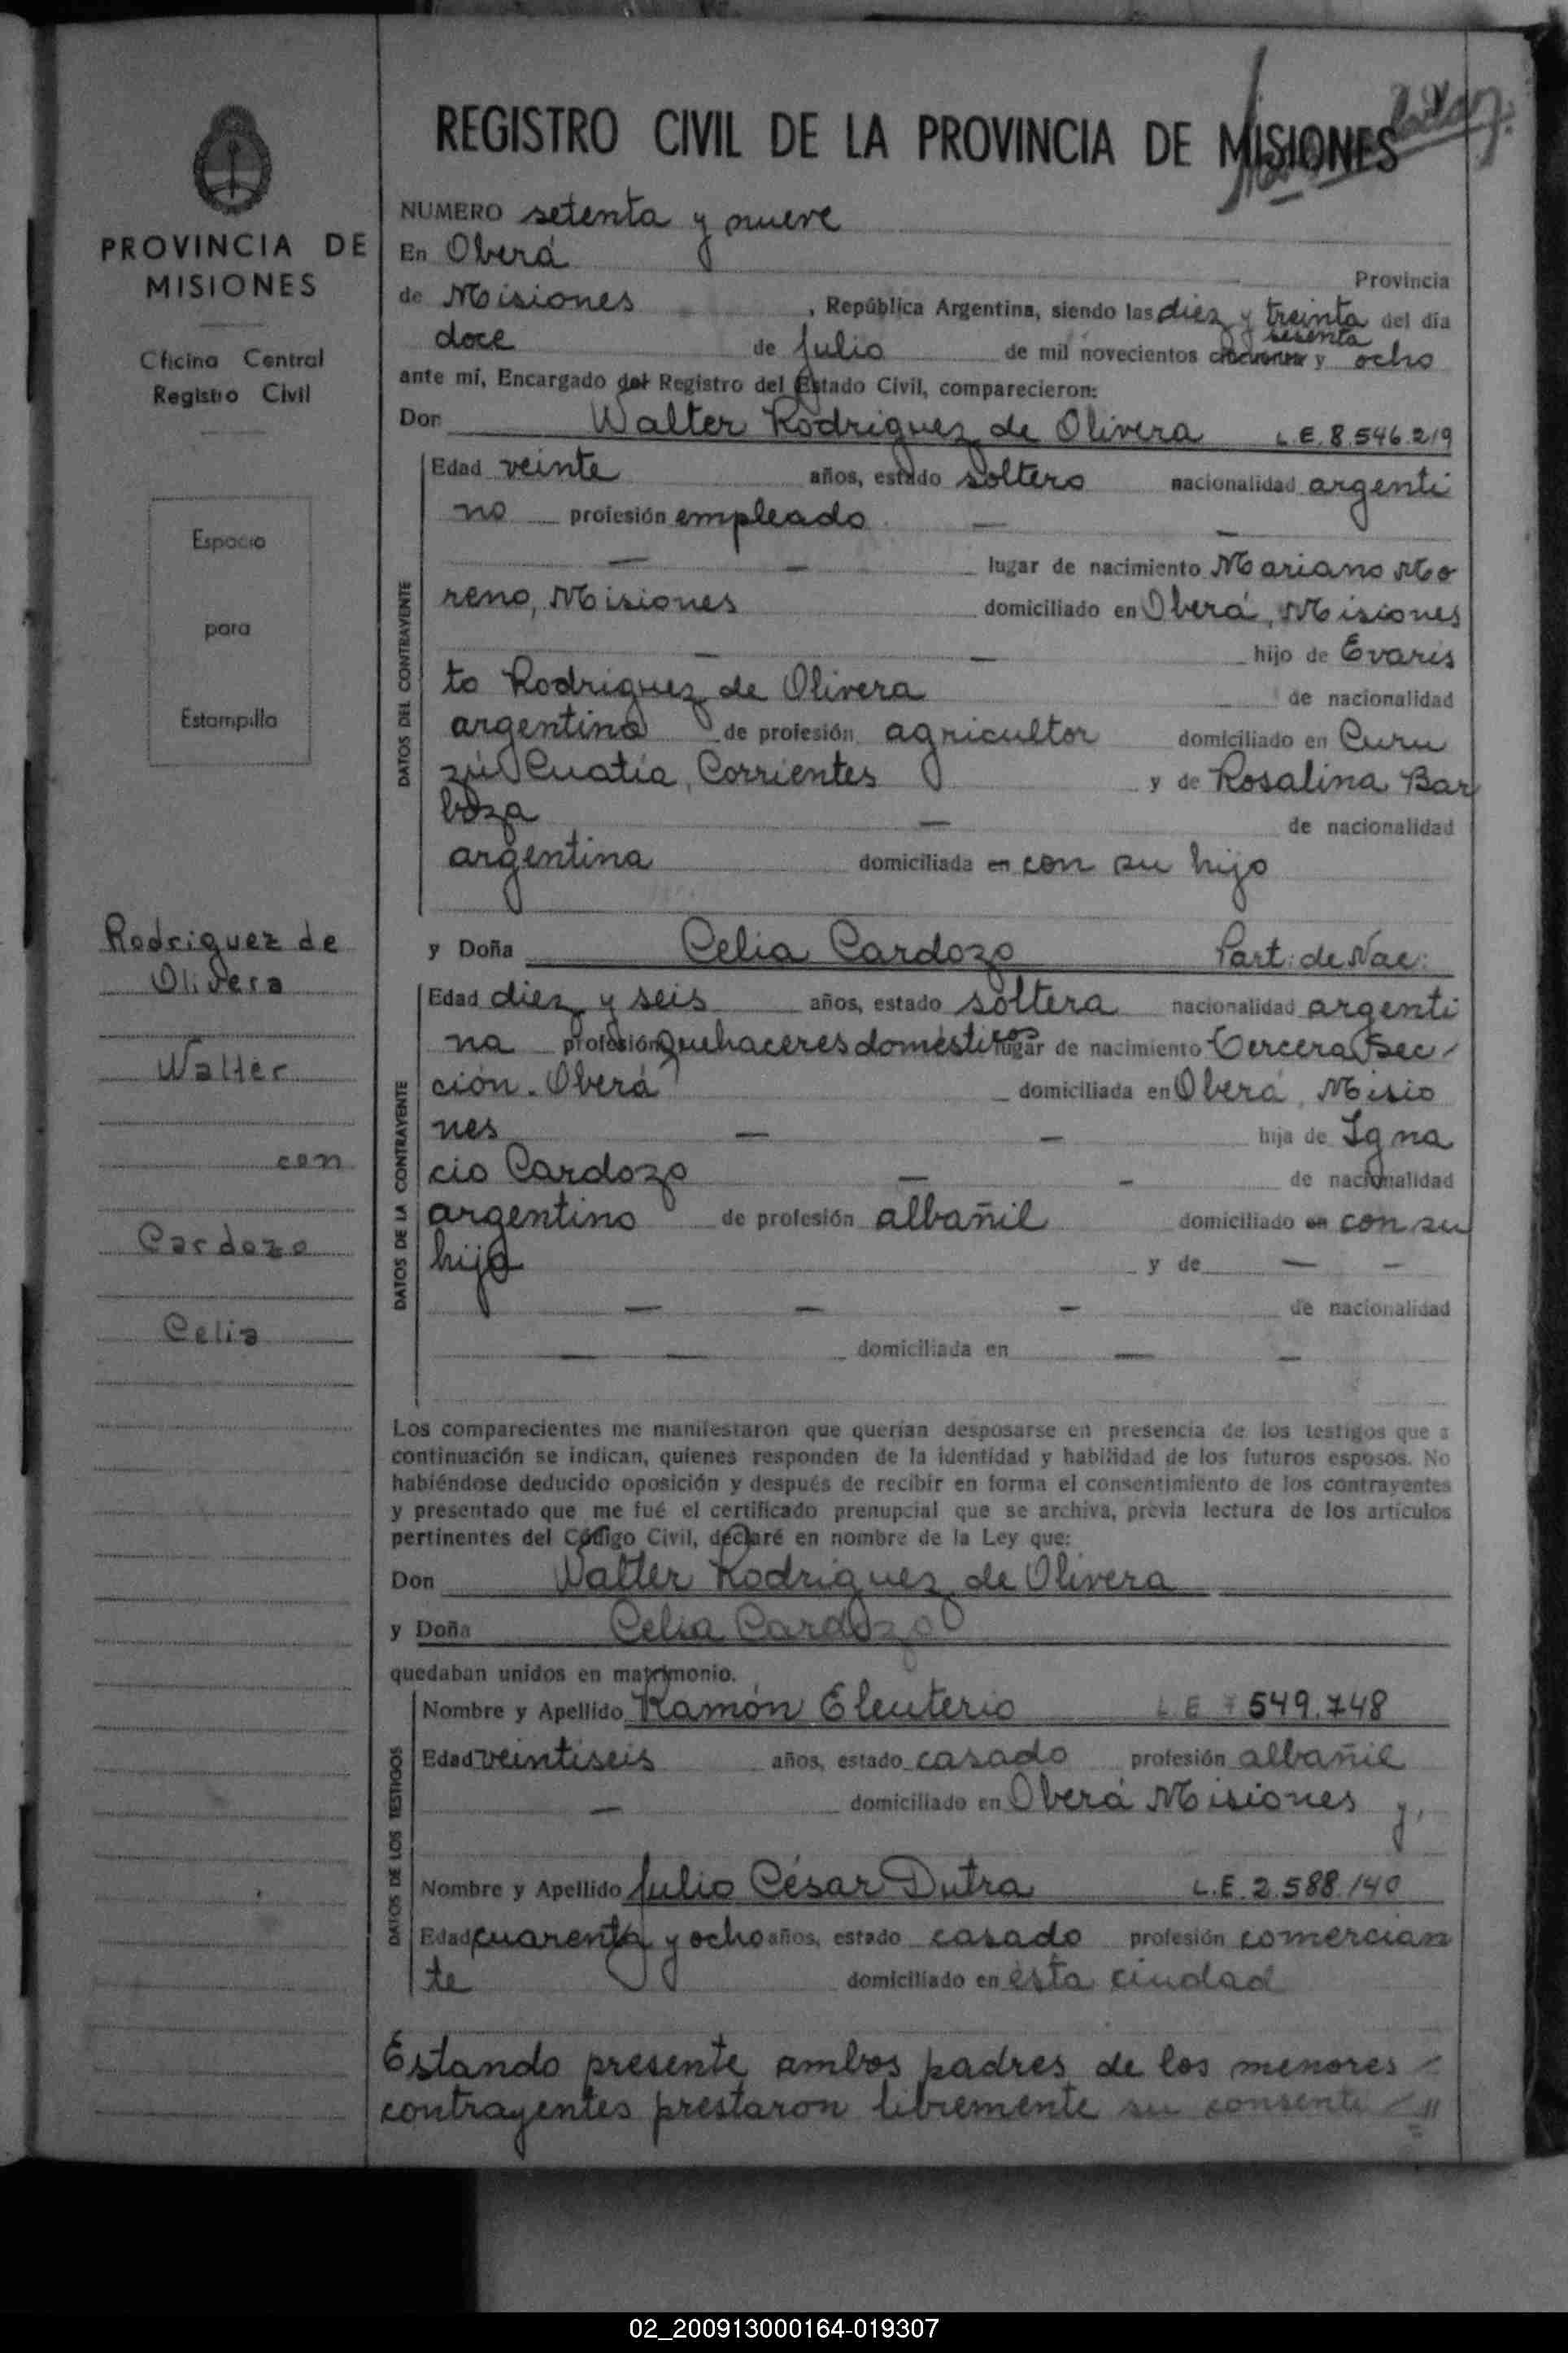 PROVINCIA DE
MISIONES
Oficina Central
Registro Civil
Espacio
para
Estampilla
Rodriguez de
Olivera
Walter
con
Cardozo
Celia
REGISTRO CIVIL DE LA PROVINCIA DE MISIONES
NUMERO setenta y nueve
En Oberá Provincia
de Misiones, República Argentina, siendo las diez y treinta del día
sesenta
doce de julio de mil novecientos cincuenta y ocho
ante mí, Encargado del Registro del Estado Civil, comparecieron:
Don Walter Rodriguez de Olivera L.E. 8.546.219
DATOS DEL CONTRAYENTE
Edad veinte años, estado soltero nacionalidad argenti
no — profesión empleado — —
— — lugar de nacimiento Mariano Mo
reno, Misiones domiciliado en Oberá, Misiones
— — hijo de Evaris
to Rodriguez de Olivera de nacionalidad
argentino de profesión agricultor domiciliado en Curu
zú Cuatia, Corrientes y de Rosalina Bar
boza — de nacionalidad
argentina domiciliada en con su hijo
y Doña Celia Cardozo Part: de Nac:
DATOS DE LA CONTRAYENTE
Edad diez y seis años, estado soltera nacionalidad argenti
na profesión quehaceres domésticos lugar de nacimiento Tercera Sec
ción. Oberá domiciliada en Oberá, Misio
nes — — hija de Igna
cio Cardozo — - de nacionalidad
argentino de profesión albañil domiciliado en con su
hija y de — —
— — — de nacionalidad
— — domiciliada en — —
Los comparecientes me manifestaron que querían desposarse en presencia de los testigos que a
continuación se indican, quienes responden de la identidad y habilidad de los futuros esposos. No
habiéndose deducido oposición y después de recibir en forma el consentimiento de los contrayentes
y presentado que me fué el certificado prenupcial que se archiva, previa lectura de los artículos
pertinentes del Código Civil, declaré en nombre de la Ley que:
Don Walter Rodriguez de Olivera
y Doña Celia Cardozo
quedaban unidos en matrimonio.
DATOS DE LOS TESTIGOS
Nombre y Apellido Ramón Eleuterio L.E 7 549.748
Edad veintiseis años, estado casado profesión albañil
— domiciliado en Oberá Misiones y,
Nombre y Apellido Julio César Dutra L.E. 2.588.140
Edad cuarenta y ocho años, estado casado profesión comercian
te domiciliado en esta ciudad
Estando presente ambos padres de los menores
contrayentes prestaron libremente su consenti //
02_200913000164-019307